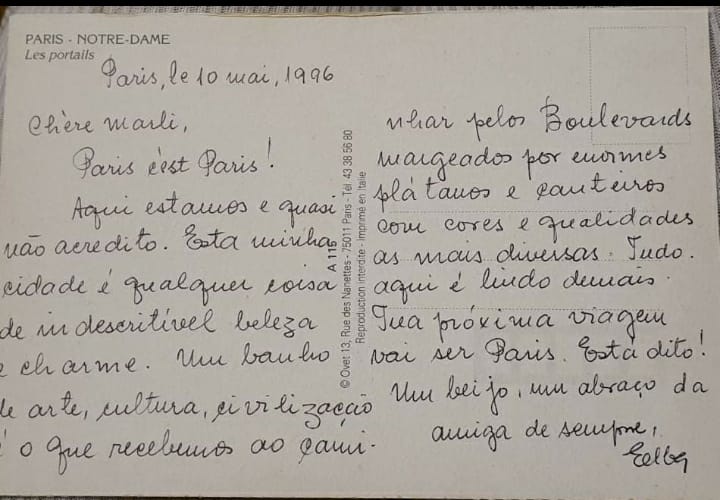 PARIS - NOTRE-DAME
Les portails
Paris, le 10 mai, 1996
Chère Marli,
Paris c'est Paris!
Aqui estamos e quasi
não acredito. Esta minha
cidade é qualquer coisa
de indescritível beleza
e charme. Um banho
de arte, cultura, civilização
é o que recebemos ao cami-
nhar pelos Boulevards
margeados por enormes
plátanos e canteiros
com cores e qualidades
as mais diversas. Tudo.
aqui é lindo demais.
Tua próxima viagem
vai ser Paris. Está dito!
Um beijo, um abraço da
amiga de sempre,
© Ovet 13, Rue des Nanettes - 75011 Paris - Tél. 43 38 56 80
Reproduction interdite - Imprimé en Italie
A 115